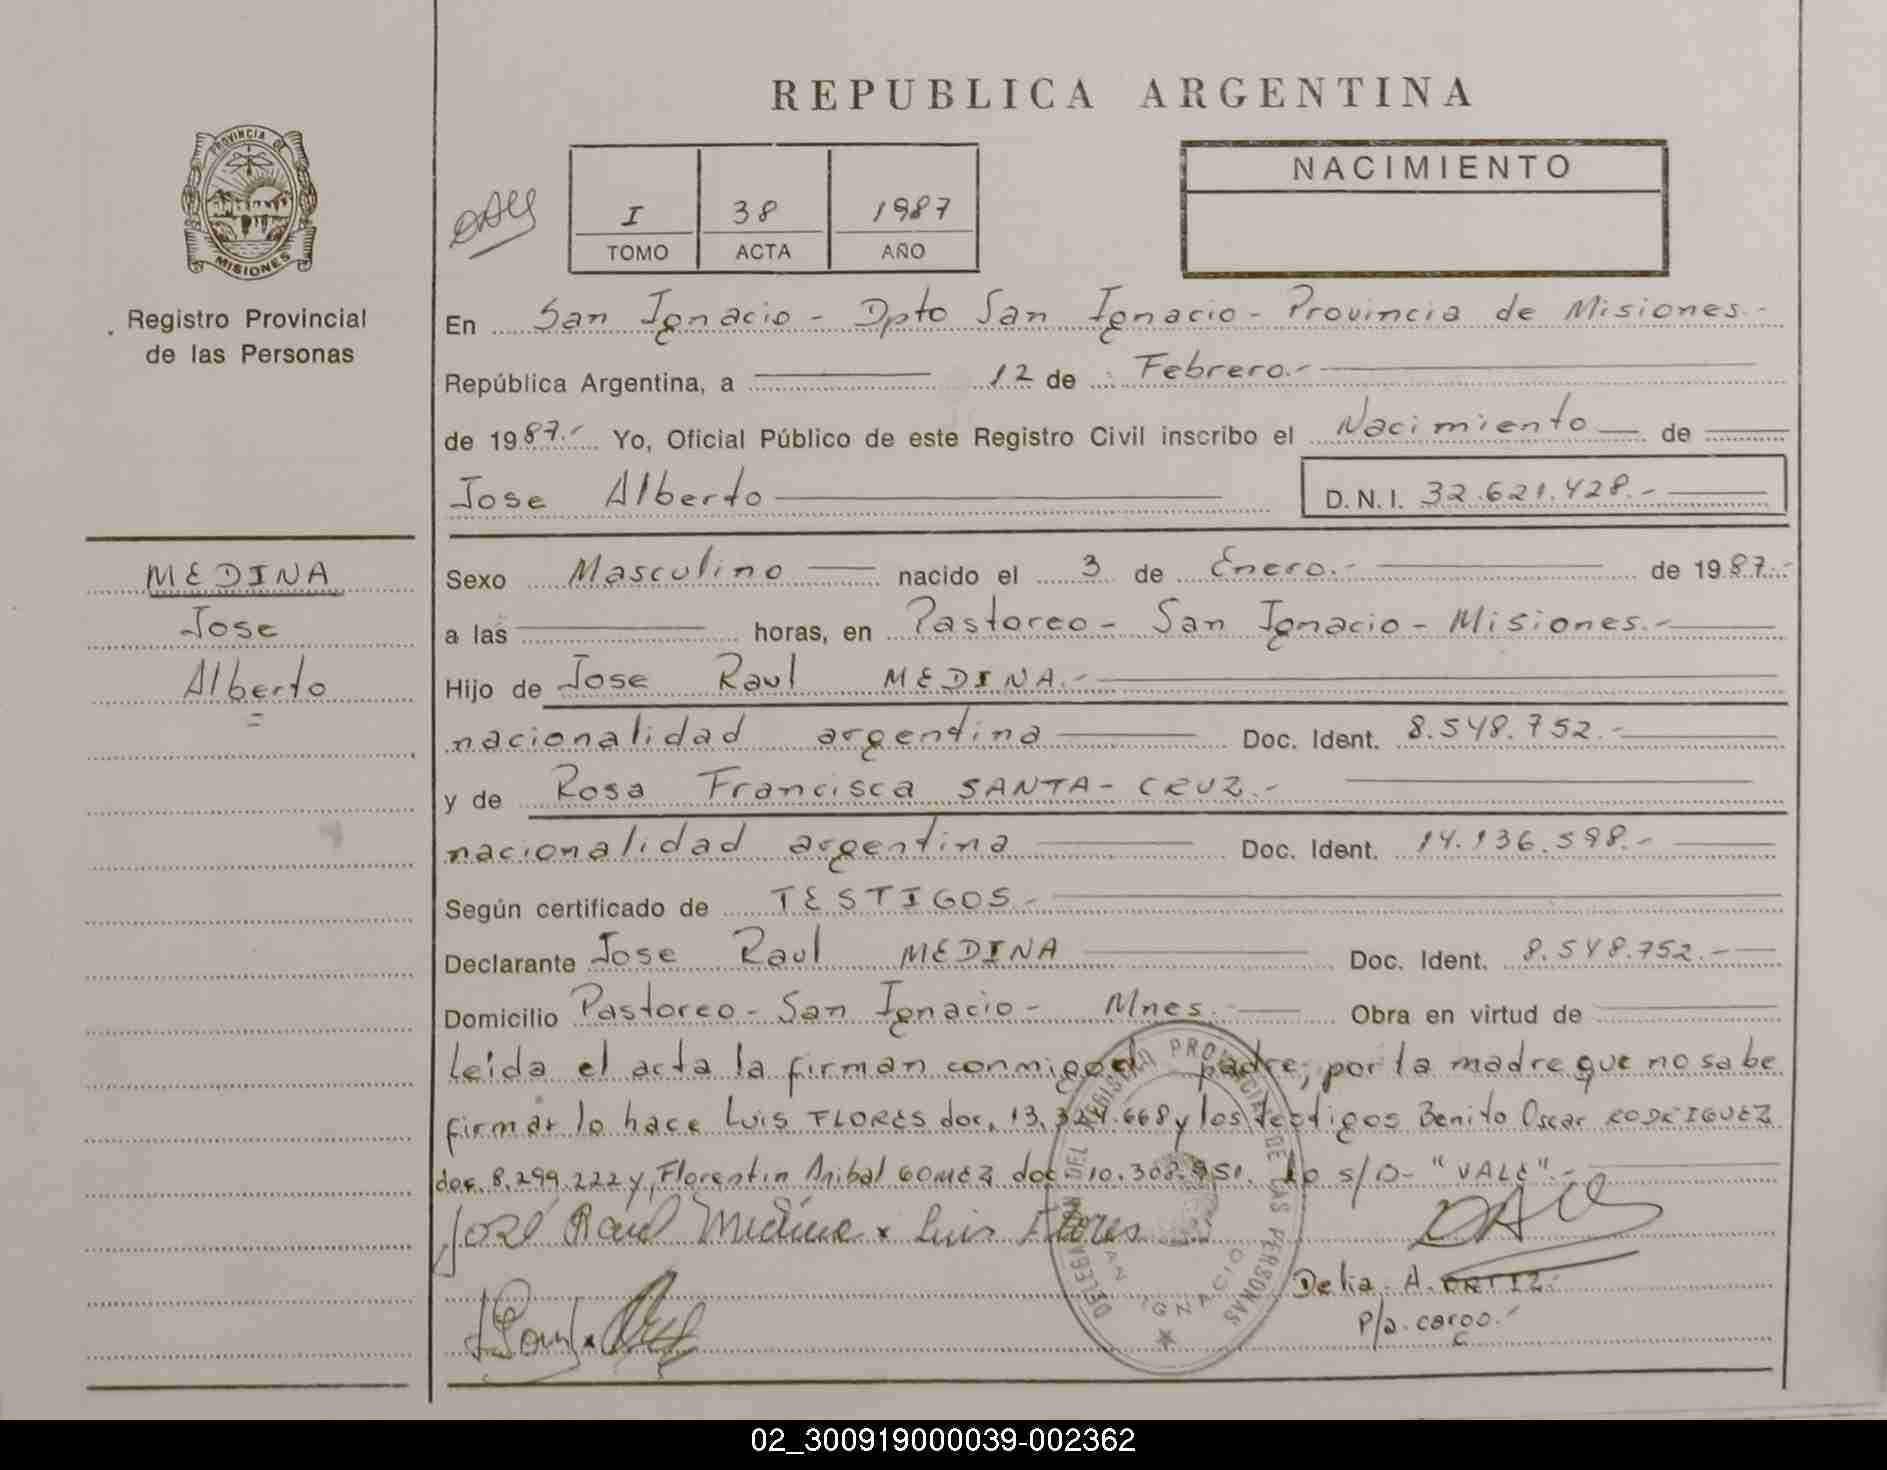 REPUBLICA ARGENTINA
PROVINCIA DE
MISIONES
Registro Provincial
de las Personas
NACIMIENTO
I 38 1987
TOMO ACTA AÑO
En San Ignacio - Dpto San Ignacio - Provincia de Misiones.-
República Argentina, a 12 de Febrero.-
de 1987.- Yo, Oficial Público de este Registro Civil inscribo el Nacimiento de
Jose Alberto D.N.I. 32.621.428.-
MEDINA
Jose
Alberto
=
Sexo Masculino nacido el 3 de Enero.- de 1987.-
a las horas, en Pastoreo - San Ignacio - Misiones.-
Hijo de Jose Raul MEDINA.-
nacionalidad argentina Doc. Ident. 8.548.752.-
y de Rosa Francisca SANTA-CRUZ.-
nacionalidad argentina Doc. Ident. 14.136.598.-
Según certificado de TESTIGOS.-
Declarante Jose Raul MEDINA Doc. Ident. 8.548.752.-
Domicilio Pastoreo - San Ignacio - Mnes.- Obra en virtud de
leida el acta la firman conmigo el padre, por la madre que no sabe
firmar lo hace Luis FLORES doc. 13.327.668 y los testigos Benito Oscar RODRIGUEZ
doc. 8.299.222 y, Florentin Anibal GOMEZ doc 10.308.951. Lo s/D- "VALE".-
José Raúl Medina x Luis Flores
Delia. A. ORTIZ.-
p/a. cargo.-
DELEGACION DEL REGISTRO PROVINCIAL DE LAS PERSONAS
SAN IGNACIO
02_300919000039-002362